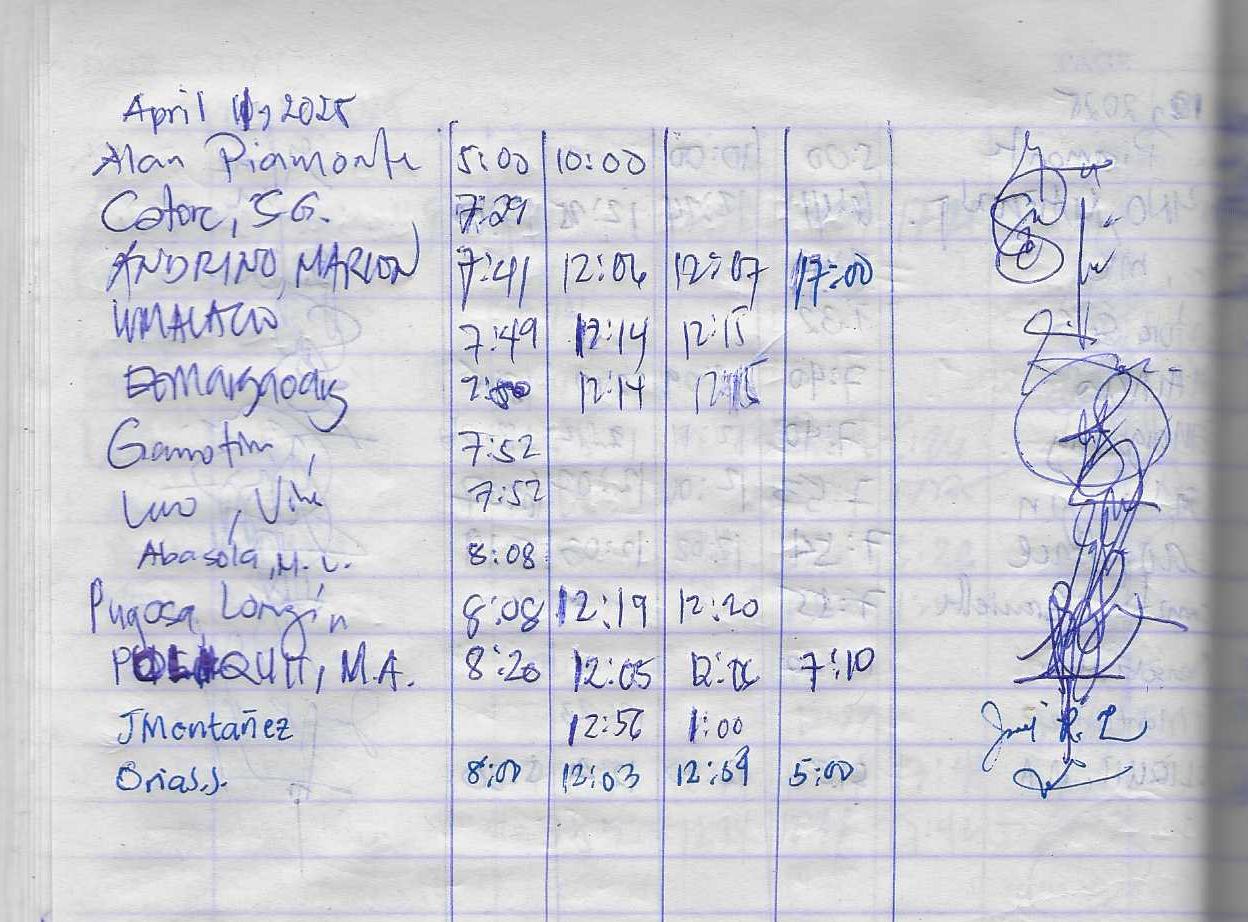 April 11, 2025
Alan Piamonte 5:00 10:00
Catorc, SG. 7:29
ANDRINO, MARLON 7:41 12:06 12:07 17:00
UMALACIO 7:49 12:14 12:15
12:14 12:15
Gamotin, 7:52
7:52
Abasola, M. L. 8:08
Pugosa, Longin 8:08 12:19 12:20
POLIQUIT, M.A. 8:20 12:05 12:06 7:10
JMontañez 12:56 1:00
Orias.s. 8:00 12:03 12:09 5:00